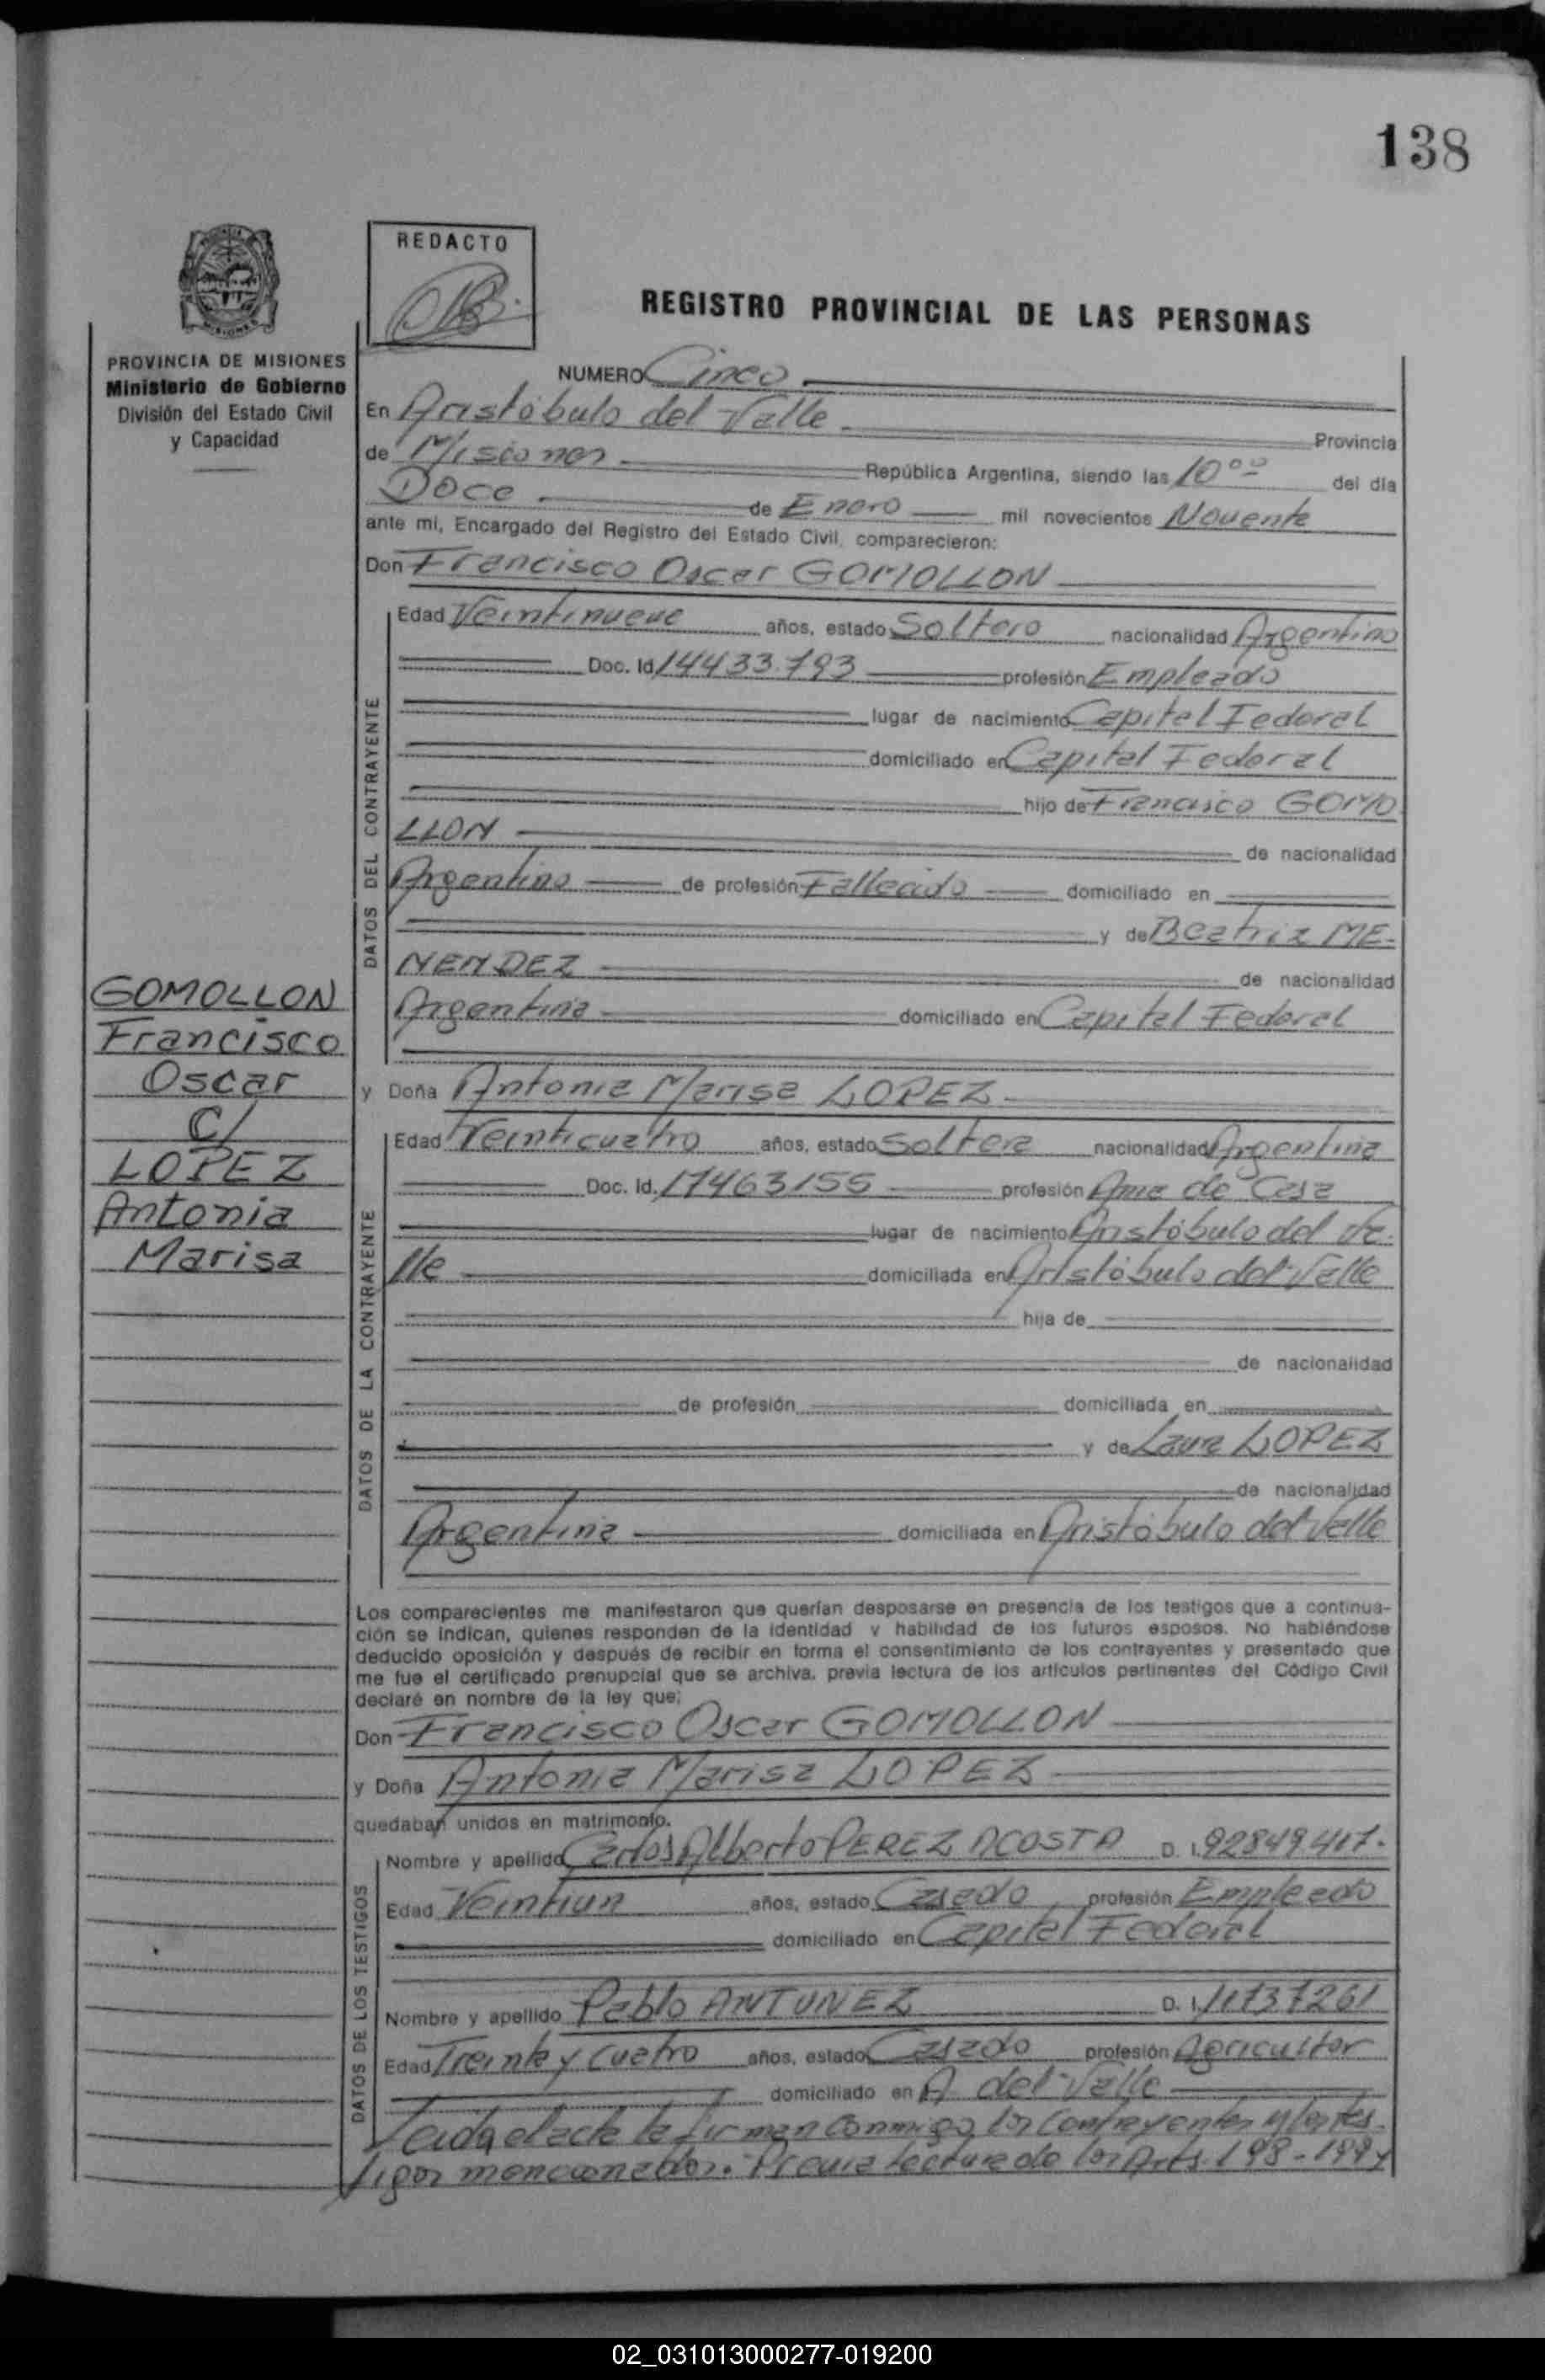 138
REDACTO
REGISTRO PROVINCIAL DE LAS PERSONAS
PROVINCIA DE MISIONES
Ministerio de Gobierno
División del Estado Civil
y Capacidad
NUMERO Cinco
En Aristóbulo del Valle Provincia
de Misiones República Argentina, siendo las 10⁰⁰ del día
Doce de Enero mil novecientos Noventa
ante mi, Encargado del Registro del Estado Civil, comparecieron:
Don Francisco Oscar GOMOLLON
DATOS DEL CONTRAYENTE
Edad Veintinueve años, estado Soltero nacionalidad Argentino
Doc. Id. 14433.793 profesión Empleado
lugar de nacimiento Capital Federal
domiciliado en Capital Federal
hijo de Francisco GOMO
LLON de nacionalidad
Argentino de profesión Fallecido domiciliado en
y de Beatriz ME-
NENDEZ de nacionalidad
Argentina domiciliado en Capital Federal
GOMOLLON
Francisco
Oscar
C/
LOPEZ
Antonia
Marisa
y Doña Antonia Marisa LOPEZ
DATOS DE LA CONTRAYENTE
Edad Veinticuatro años, estado Soltera nacionalidad Argentina
Doc. Id. 17463155 profesión Ama de Casa
lugar de nacimiento Aristóbulo del Va-
lle domiciliada en Aristóbulo del Valle
hija de
de nacionalidad
de profesión domiciliada en
y de Laura LOPEZ
de nacionalidad
Argentina domiciliada en Aristóbulo del Valle
Los comparecientes me manifestaron que querían desposarse en presencia de los testigos que a continua-
ción se indican, quienes responden de la identidad y habilidad de los futuros esposos. No habiéndose
deducido oposición y después de recibir en forma el consentimiento de los contrayentes y presentado que
me fue el certificado prenupcial que se archiva, previa lectura de los artículos pertinentes del Código Civil
declaré en nombre de la ley que;
Don Francisco Oscar GOMOLLON
y Doña Antonia Marisa LOPEZ
quedaban unidos en matrimonio.
DATOS DE LOS TESTIGOS
Nombre y apellido Carlos Alberto PEREZ ACOSTA D. I. 92849417.
Edad Veintiun años, estado Casado profesión Empleado
domiciliado en Capital Federal
Nombre y apellido Pablo ANTUNEZ D. I. 11737261
Edad Treinta y Cuatro años, estado Casado profesión Agricultor
domiciliado en A. del Valle
Leida el acta la firman conmigo los Contrayentes y los tes-
tigos mencionados. Previa lectura de los Arts. 198-199 y
02_031013000277-019200